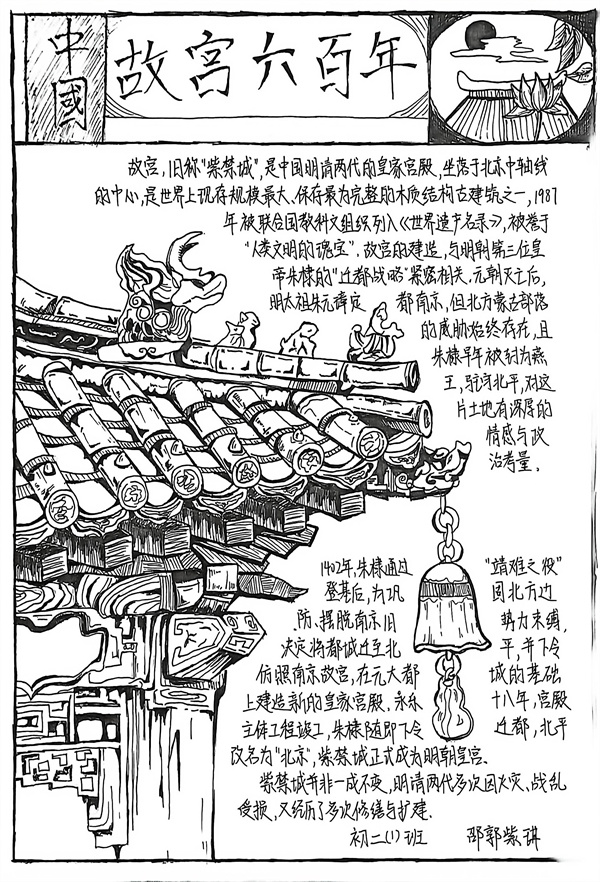 中國
故宫六百年
故宫,旧称"紫禁城",是中国明清两代的皇家宫殿,坐落于北京中轴线
的中心,是世界上现存规模最大、保存最为完整的木质结构古建筑之一,1987
年被联合国教科文组织列入《世界遗产名录》,被誉于
"人类文明的瑰宝".故宫的建造,与明朝第三位皇
帝朱棣的"迁都战略"紧密相关.元朝灭亡后,
明太祖朱元璋定都南京,但北方蒙古部落
的威胁始终存在,且
朱棣早年被封为燕
王,驻守北平,对这
片土地有深厚的
情感与政
治考量.
1402年,朱棣通过"靖难之役"
登基后,为巩固北方边
防、摆脱南京旧势力束缚,
决定将都城迁至北平,并下令
仿照南京故宫,在元大都城的基础
上建造新的皇家宫殿.永乐十八年,宫殿
主体工程竣工,朱棣随即下令迁都,北平
改名为"北京",紫禁城正式成为明朝皇宫.
紫禁城并非一成不变,明清两代多次因火灾、战乱
受损,又经历了多次修缮与扩建.
初二(1)班 邵郭紫琪